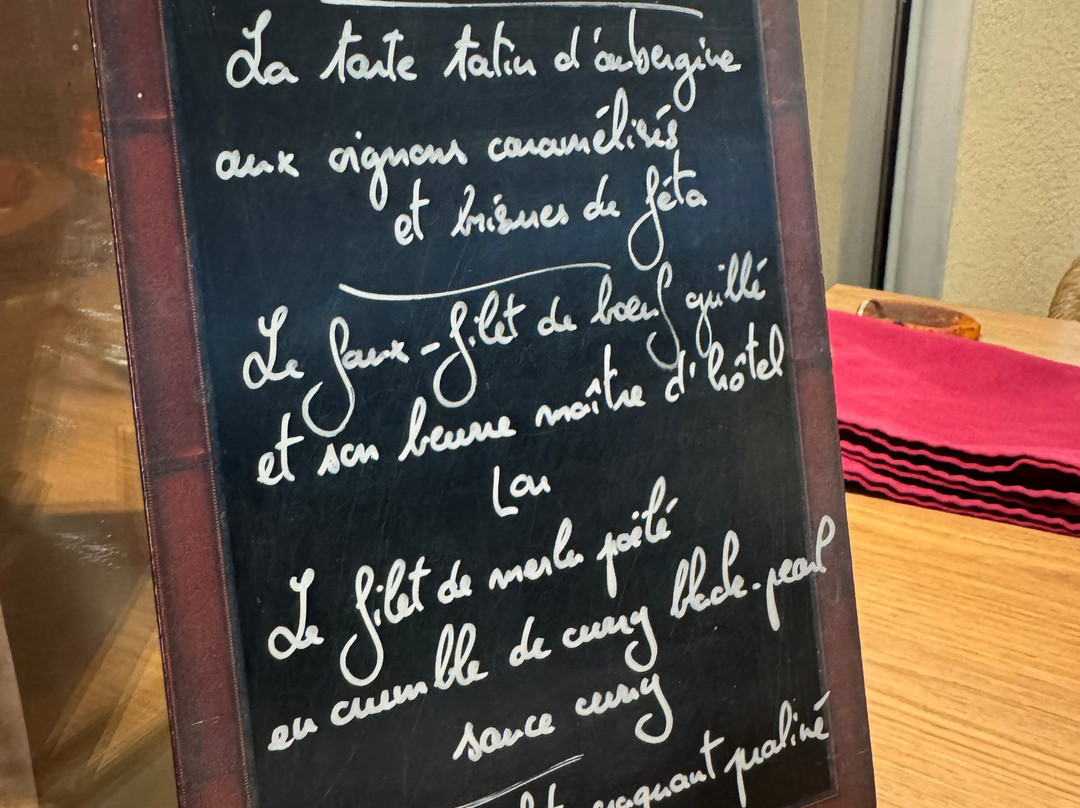 La tarte tatin d'aubergine
aux oignons caramélisés
et brisures de féta
Le faux-filet de bœuf grillé
et son beurre maître d'hôtel
Lou
Le filet de merlu poêlé
en crumble de curry black-pearl
sauce curry
praliné